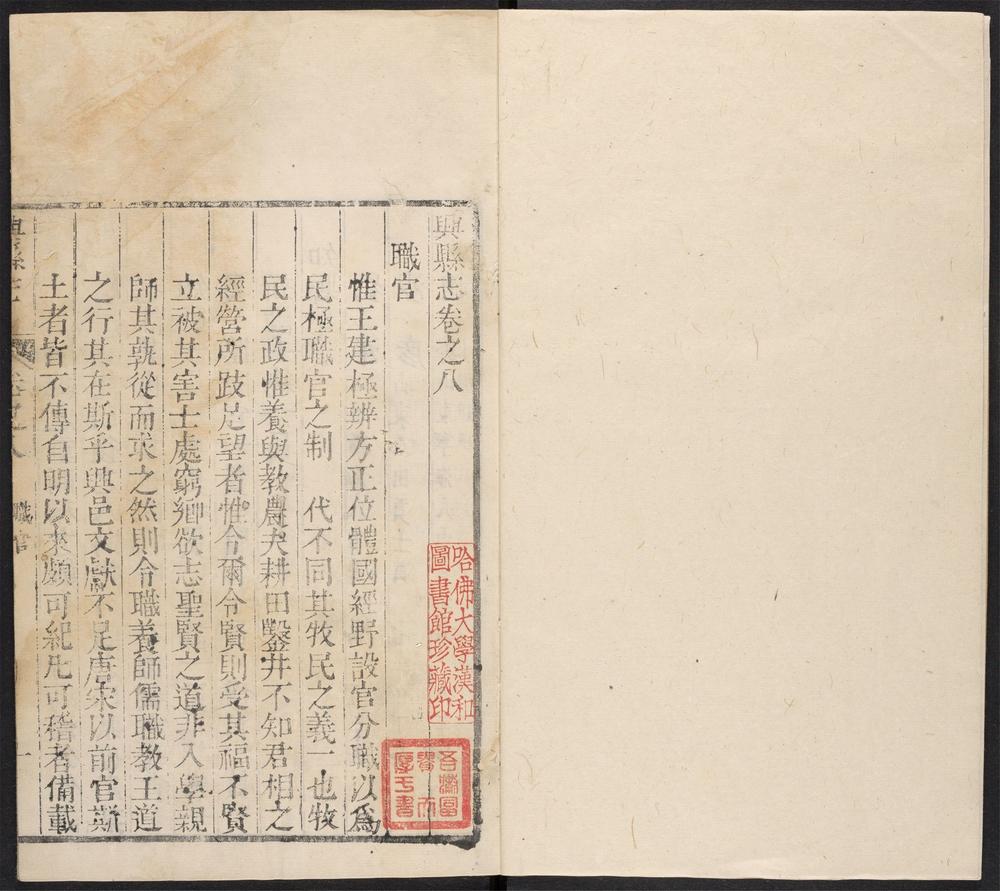 興縣志卷之八
職官
惟王建極辨方正位體國經野設官分職以爲
民極職官之制 代不同其牧民之義一也牧
民之政惟養與教農夫耕田鑿井不知君相之
經營所跂足望者惟令爾令賢則受其福不賢
立被其害士處窮鄉欲志聖賢之道非入學親
師其孰從而求之然則令職養師儒職教王道
之行其在斯乎興邑文獻不足唐宋以前官斯
土者皆不傳自明以來頗可紀凡可稽者備載
興縣志 卷之八 職官 一
哈佛大學漢和
圖書館珍藏印